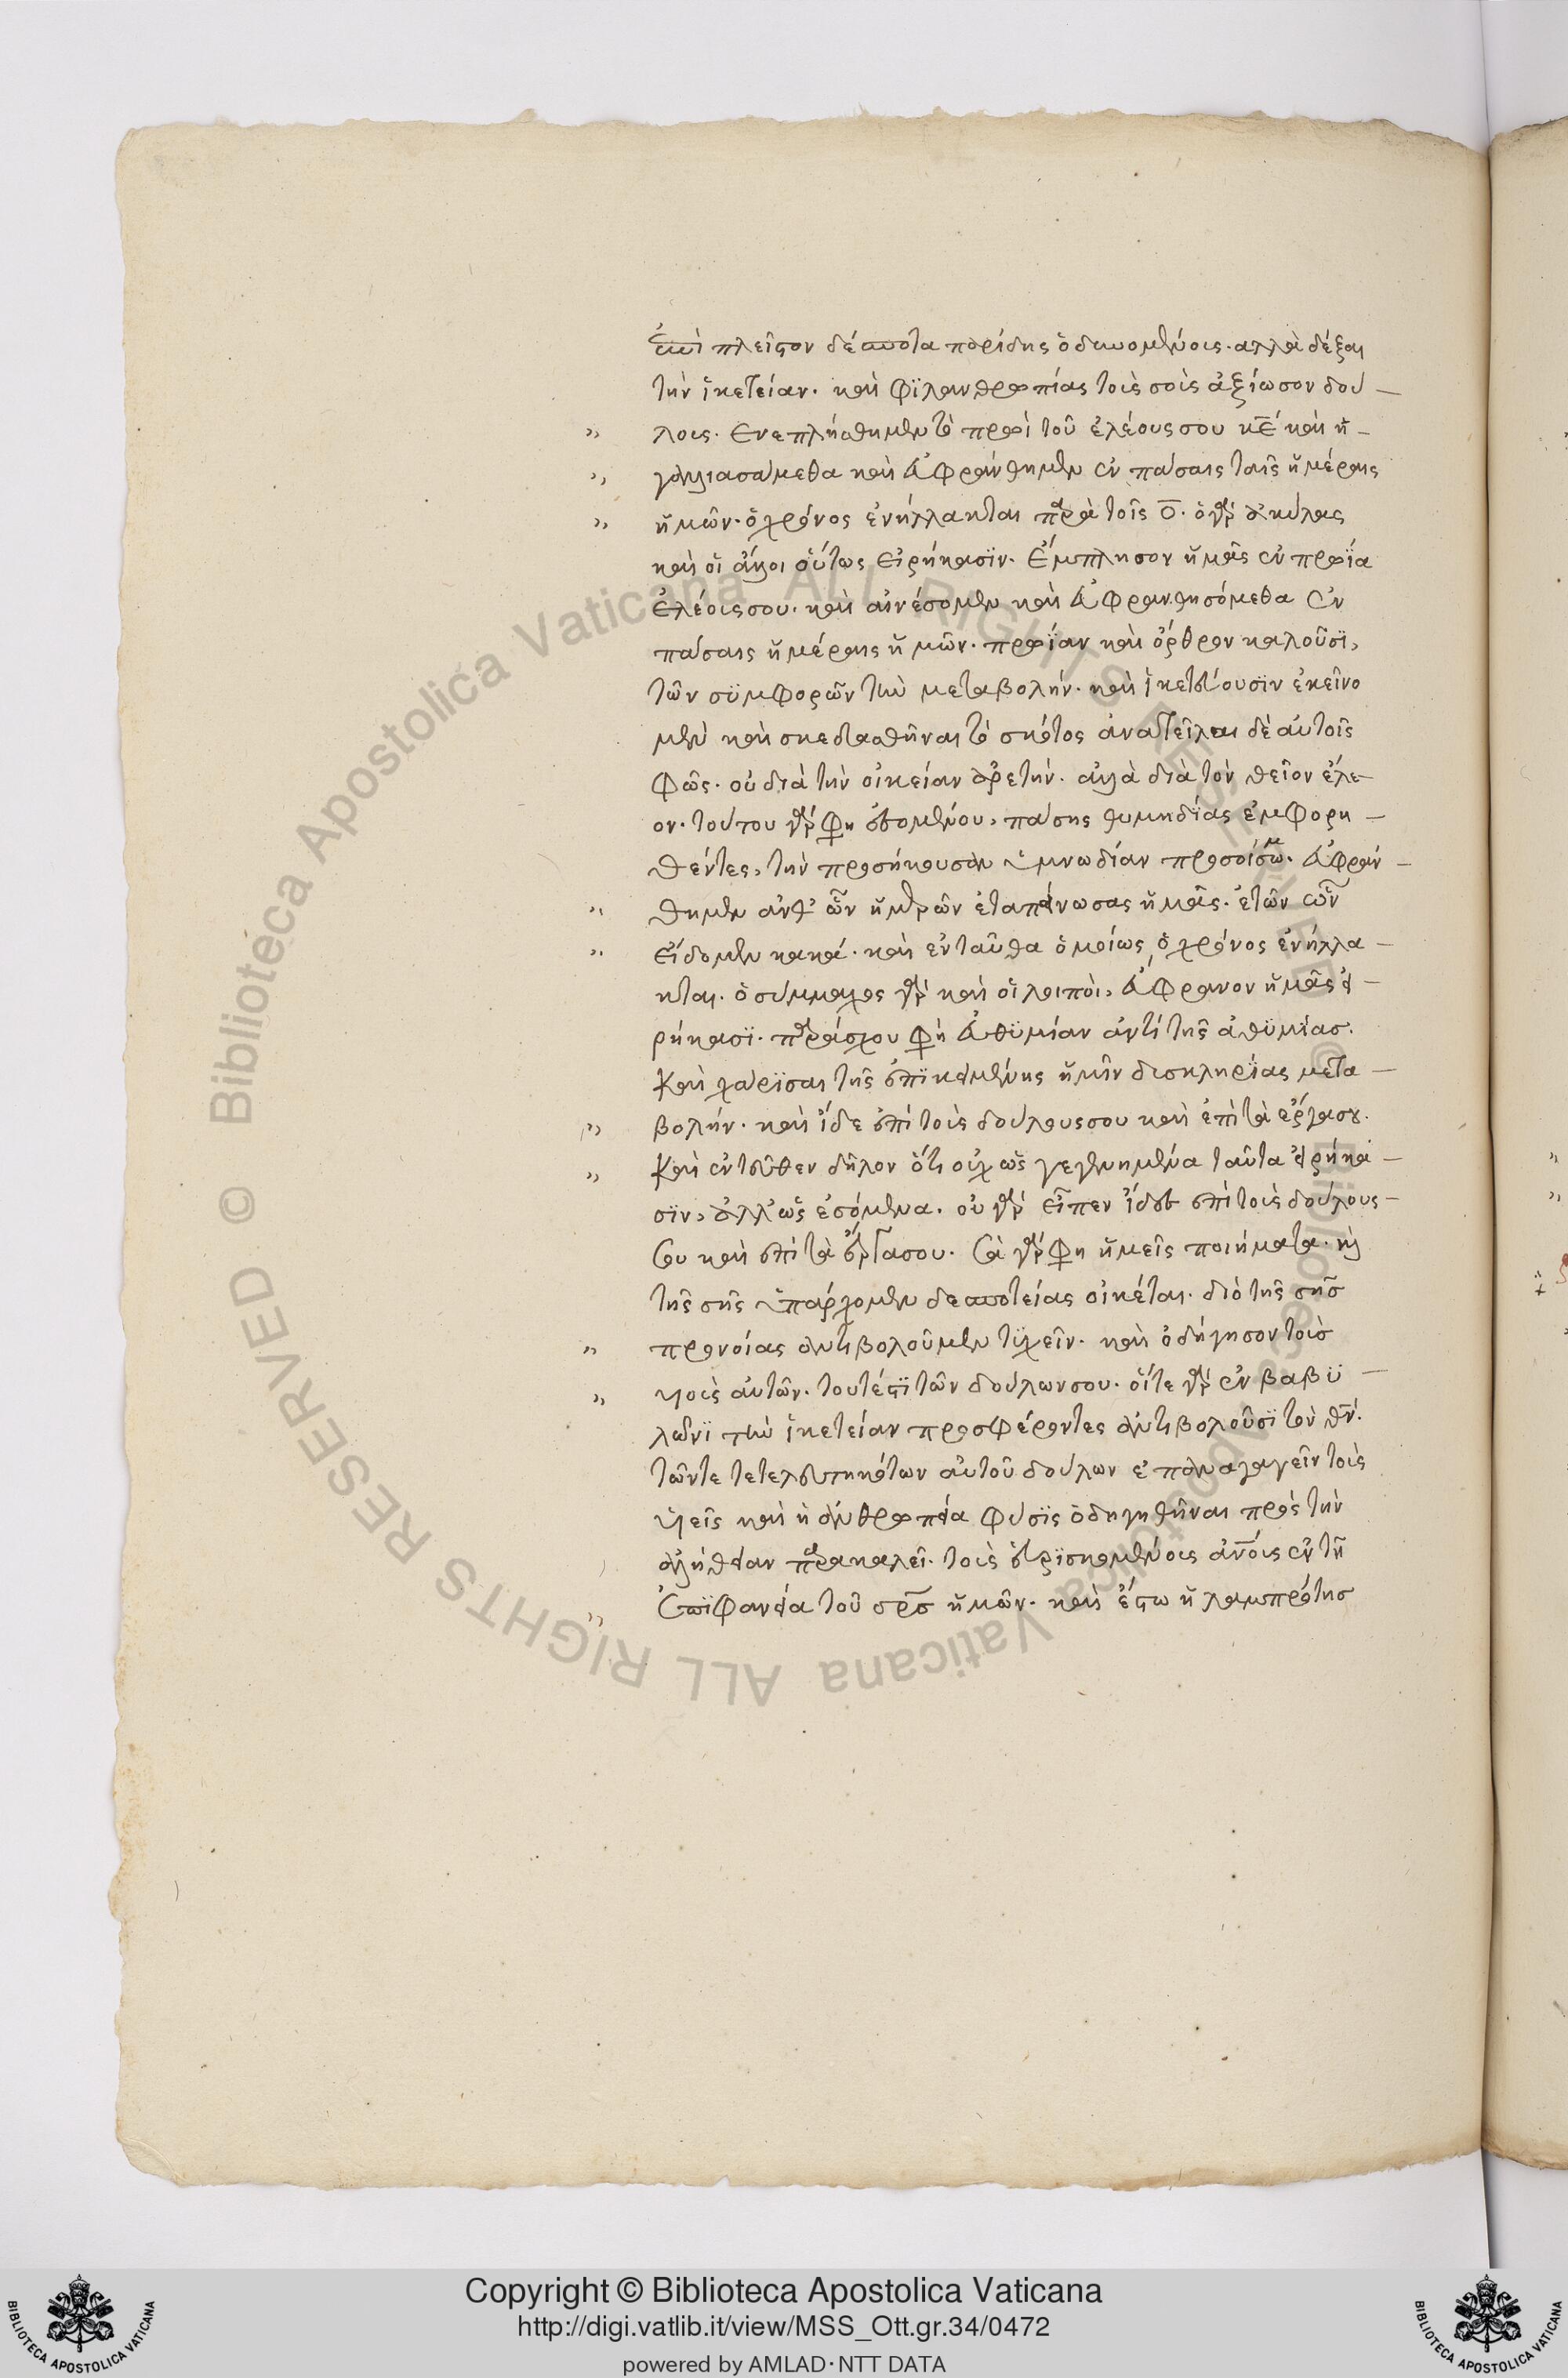 ἐπὶ πλεῖστον δέσποτα παρίδης ὀδυνομένους. αλλὰ δέξαι
τὴν ἱκετείαν. καὶ φϊλανθρωπίας τοὺς σοὺς ἀξίωσον δού
λους. Ενεπλήσθημεν τὸ πρωῒ τοῦ ἐλέους σου κ̅ε̅ καὶ ἠ
γαλλιασάμεθα καὶ εὐφράνθημεν ἐν πάσαις ταῖς ἡμέραις
ἡμῶν. ὁ χρόνος ἐνήλλακται παρὰ τοῖς ο̅. ὁ γὰρ ἀκύλας
καὶ οἱ ἄλλοι οὕτως εἰρήκασϊν. Ἔμπλησον ἡμᾶς ἐν πρωΐα
ἐλέους σου. καὶ αἰνέσομεν καὶ εὐφρανθησόμεθα ἐν
πάσαις ἡμέραις ἡμῶν. πρωΐαν καὶ ὄρθρον καλοῦσϊ,
τῶν σϋμφορῶν τὴν μεταβολήν. καὶ ἱκετεύουσϊν ἐκεῖνο
μὲν καὶ σκεδασθῆναι τὸ σκότος ἀνατεῖλαι δὲ αὐτοῖς
φῶς. οὐ διὰ τὴν οἰκείαν ἀρετὴν. ἀλλὰ διὰ τὸν θεῖον ἔλε
ον. τούτου γάρ φη γενομένου, πάσης θυμηδίας ἐμφορη
θέντες, τὴν προσήκουσαν ὑμνωδίαν προσοίσωμ. εὐφράν
θημεν ἀνθ' ὧν ἡμερῶν ἐταπείνωσας ἡμᾶς. ἐτῶν ὧν
εἴδομεν κακά. καὶ ἐνταῦθα ὁμοίως ὁ χρόνος ἐνήλλα
κται. ὁ σύμμαχος γὰρ καὶ οἱ λοιποὶ, εὔφρανον ἡμᾶς εἰ
ρήκασϊ. παράσχου φὴ εὐθϋμίαν ἀντὶ τῆς ἀθϋμίασ.
καὶ χάρϊσαι τῆς ἐπϊκειμένης ἡμῖν δισκληρίας μετα
βολήν. καὶ ἴδε ἐπὶ τοὺς δούλους σου καὶ ἐπὶ τὰ ἔργα σου.
καὶ ἐντεῦθεν δῆλον ὅτι οὐχ ὡς γεγενημένα ταῦτα εἰρήκα
σϊν, ἀλλ' ὡς ἐσόμενα. οὐ γὰρ εἶπεν ἴδεν ἐπὶ τοὺς δούλους
σου καὶ ἐπὶ τὰ ἔργα σου. σὰ γάρ φη ἡμεῖς ποιήματα. κὶ
τῆς σῆς ὑπάρχομεν δεσποτείας οἰκέται. διὸ τῆς σῆσ
προνοίας ἀντιβολοῦμεν τϋχεῖν. καὶ ὁδήγησον τοὺσ
υἱοὺς αὐτῶν. τουτέστϊ τῶν δούλων σου. οἵτε γὰρ ἐν βαβϋ
λῶνϊ τὴν ἱκετείαν προσφέροντες ἀντιβολοῦσϊ τὸν θ̅ν̅.
τῶν τε τετελευτηκότων αὐτοῦ δούλων ἐπαναγαγεῖν τοὺς
υἱεῖς καὶ ἡ ἀνθρωπεία φύσϊς ὁδηγηθῆναι πρὸς τὴν
ἀλήθειαν παρακαλεῖ. τοὺς εὑρϊσκομένους ἀν̅ους ἐν τῆ
ἐπϊφανεία τοῦ σρ̅σ ἡμῶν. καὶ ἔστω ἡ λαμπρότησ
Copyright © Biblioteca Apostolica Vaticana
http://digi.vatlib.it/view/MSS_Ott.gr.34/0472
powered by AMLAD·NTT DATA